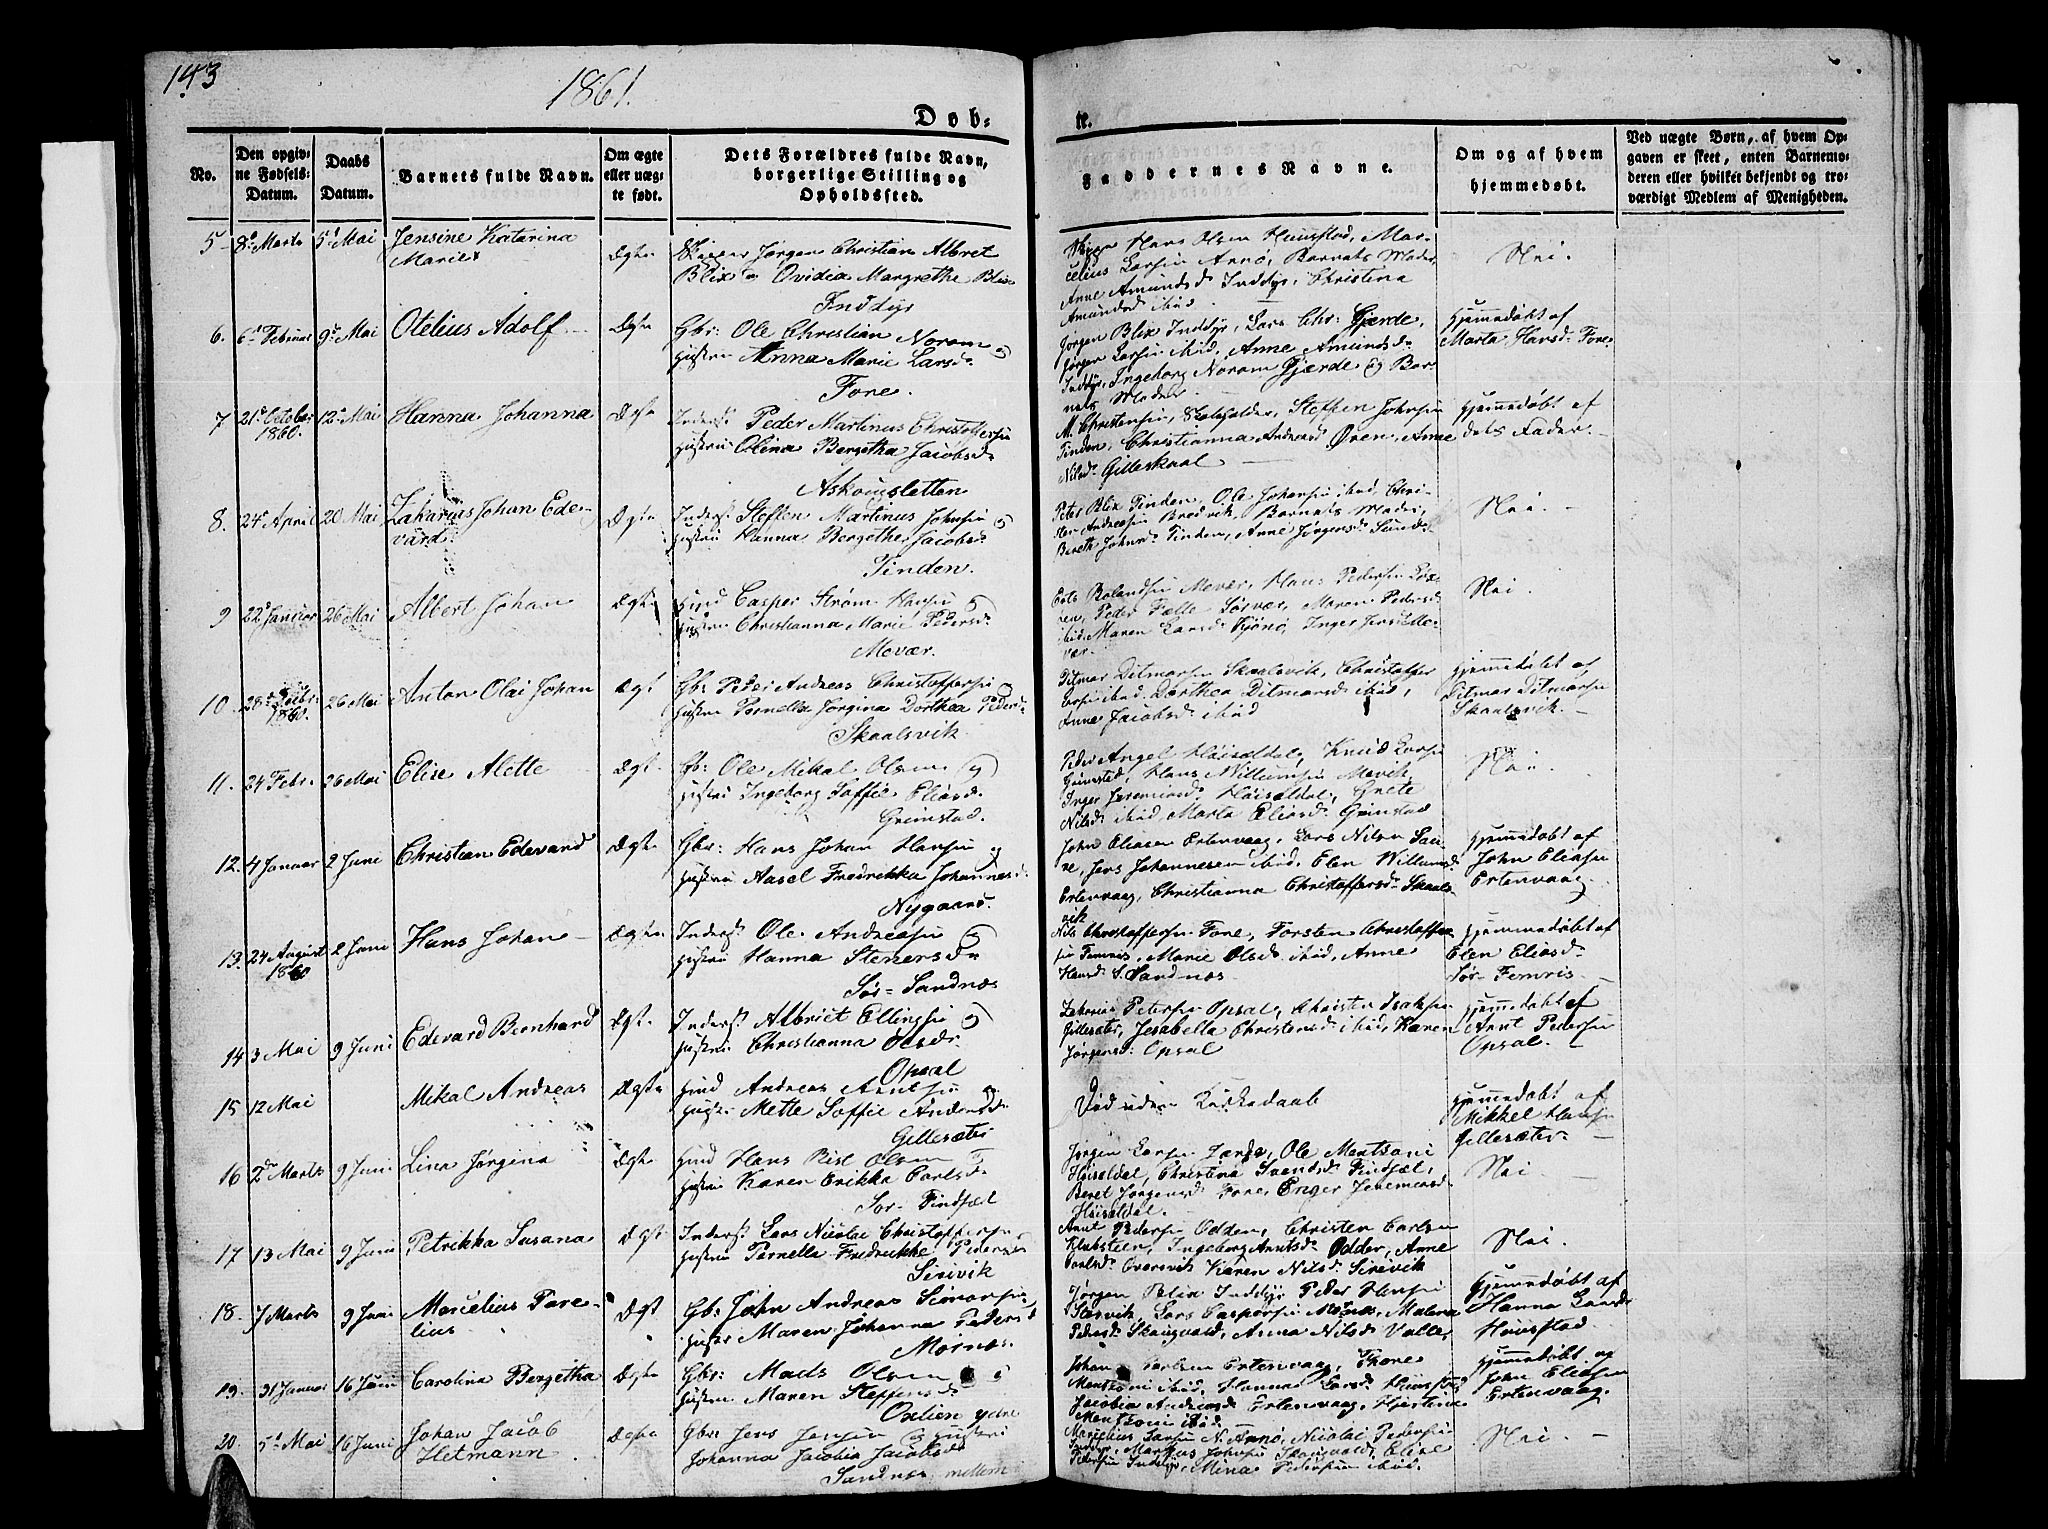 143
1861.
Døb-
te.
No.
Den opgiv-
ne Fødsels-
Datum.
Daabs
Datum.
Barnets fulde Navn.
Om ægte
eller uæg-
te født.
Dets Forældres fulde Navn,
borgerlige Stilling og
Opholdssted.
Faddernes Navne.
Om og af hvem
hjemmedøbt.
Ved uægte Børn, af hvem Op-
gaven er skeet, enten Barnemo-
deren eller hvilket bekjendt og tro-
værdigt Medlem af Menigheden.
5 8de Marts 5te Mai Jensine Katarina
Marie
Ægte Jørgen Christian Albret
Blix Ovidia Margrethe Blix
Inddyr
Hans Olsen Huusstad, Mar-
celius Larsen Arnø, Barnets Moder,
Anne Amundsd Inddyr, Christina
Amundsd ibid
Nei.
6. 6te Februar 9de Mai Otelius Adolf
Ægte Gbr: Ole Christian Norom og
Hustru Anna Marie Larsd
Fore.
Jørgen Blix Inddyr, Lars Chr: Gjærde,
Jørgen Larsen ibid, Anne Amundsd
Inddyr, Ingeborg Norom Gjærde og Bar-
nets Moder
Hjemmedøbt af
Marta Hansd Fore
7 21de October
1860. 12te Mai Hanna Johanna
Ægte Inderst Peder Martinus Christoffersen
Hustru Olina Bergetha Jacobsd
M. Christensen, Skoleholder, Steffen Johnsen
Tinden, Christianna Andreasd Øren, Anne
Nilsd Gilleskaal
Hjemmedøbt af
dets Fader.
8. 24de April 20 Mai Zakarias Johan Ede-
vard
Ægte Inderst Steffen Martinus Johnsen og
Hustru Hanna Bergethe Jacobsd
Tinden.
Peter Blix Tinden, Ole Johansen ibid, Chri-
Andreasen Bredvik, Barnets Moder,
Bereth Johnsd Tinden, Anne Jørgensd Sund
Nei.
9 22de Januar 26 Mai Albert Johan
Ægte Huusd Casper Strøm Hansen og
Hustru Christianna Marie Pedersd
Mevær.
Rolandsen Mevær, Hans Pedersen
Peder Falle Sørvær, Maren Pedersd
ibid, Maren Larsd Kjønø, Inger
vær.
Nei.
10. 28de
1860. 26 Mai Anton Olai Johan
Ægt Gbr: Peder Andreas Christoffersen og
Hustru Pernella Jørgina Dorthea Pedersd
Skaalsvik
Ditmar Ditmarsen Skaalsvik, Christoffer
ibid, Dorthea Ditmarsd ibid,
Anne Jacobsd ibid
Hjemmedøbt af
Ditmar Ditmarsen
Skaalsvik.
11. 24 Febr. 26 Mai Elise Alette
Ægt Gb: Ole Mikal Olsen og
Hustru Ingeborg Soffie Eliasd
Grimstad.
Peder Angel Høiseldal, Knud Larsen
Grimstad, Hans Willumsen Mevik,
Inger Jeremiasd Høiseldal, Grete
Nilsd ibid, Marta Eliasd Grimstad
Nei
12. 4 Januar 2 Juni Christian Edevard
Ægte Gbr: Hans Johan Hansen og
Hustru Aasel Fredrikka Johannesd
Nygaard.
John Eliasen Ertenvaag, Lars Nilsen Sau-
re, Jens Johannesen ibid, Elen Willumsd
Ertenvaag, Christianna Christoffersd Skaals-
vik
Hjemmedøbt af
John Eliasen
Ertenvaag.
13. 24 August
1860 2 Juni Hans Johan
Ægte Inderst Ole Andreasen og
Hustru Hanna Stenersd
Sør-Sandnæs
Nils Christoffersen Fore, Torsten Christoffer-
sen Femris, Marie Olsd ibid, Anne
Hansd S. Sandnæs
Hjemmedøbt af
Elen Eliasd
Sør-Femris.
14 3 Mai 9 Juni Edevard Bernhard
Ægte Inderst Albriet Ellingsen og
Hustru Christianna Olsdr
Opsal
Zakarias Petersen Opsal, Christen Isaksen
Gillesæter, Jesabella Christensd ibid, Karen
Jørgensd: Opsal
Hjemmedøbt af
Arnt Pedersen
Opsal.
15 12 Mai Mikal Andreas
Ægte Huusd Andreas Arntsen og
Hustr: Mette Soffie Andersd
Gillesæter
Død uden Kirkedaab
Hjemmedøbt af
Mikkel Hansen
Gillesæter
16 2de Marts 9 Juni Lina Jørgina
Ægte Huusd Hans Rist Olsen
Hustru Karen Erikka Carlsd
Sør-Findset
Jørgen Larsen, Ole Mentsoni
Høiseldal, Christina Svendsd Findset,
Beret Jørgensd Fore, Enger Jeremiasd
Høiseldal.
Nei
17 13 Mai 9 Juni Petrikka Susana
Ægte Inderst Lars Nicolai Christoffersen
Hustru Pernella Fredrikke Pedersd
Sirivik
Arnt Pedersen Odden, Christen Carlsen
Klubsteen, Ingeborg Arntsd Odden, Anne
Carlsd Overvik Karen Nilsd Sirivik
Nei.
18. 7 Marts 9 Juni Marcelius Pare-
lius
Ægt Gb: John Andreas Simonsen
Hustr Maren Johanna Pedersd
Mornæs.
Jørgen Blix Inddyr, Peder Hansen
Storvik, Lars Caspersen Mornæs, Malena
Pedersd Skaugvold, Anna Nilsd Valle,
Hjemmedøbt af
Hanna Larsd
Huusstad
19. 31 Januar 16 Juni Carolina Bergetha
Ægte Gbr: Mads Olsen
Hustru Maren Steffensd
Oxlien ydre
Johan Carlsen Ertenvaag, Thore
Mentsoni ibid, Hanna Larsd Huusstad
Jacobia Andreasd Ertenvaag, Hjertina
Mentsoni ibid
Hjemmedøbt af
John Eliasen
Ertenvaag.
20. 5te Mai 16 Juni Johan Jacob
Hetmann
Ægte Gbr: Jens Jensen og Hustru
Johanna Jacobia Jacobsd
Sandnæs mellem
Marcelius Larsen N. Arnø, Nicolai Pedersen
Inddyr, Markus Johnsen Skaugvold, Elise
Pedersen Inddyr, Mina Pedersen ibid.
Nei.